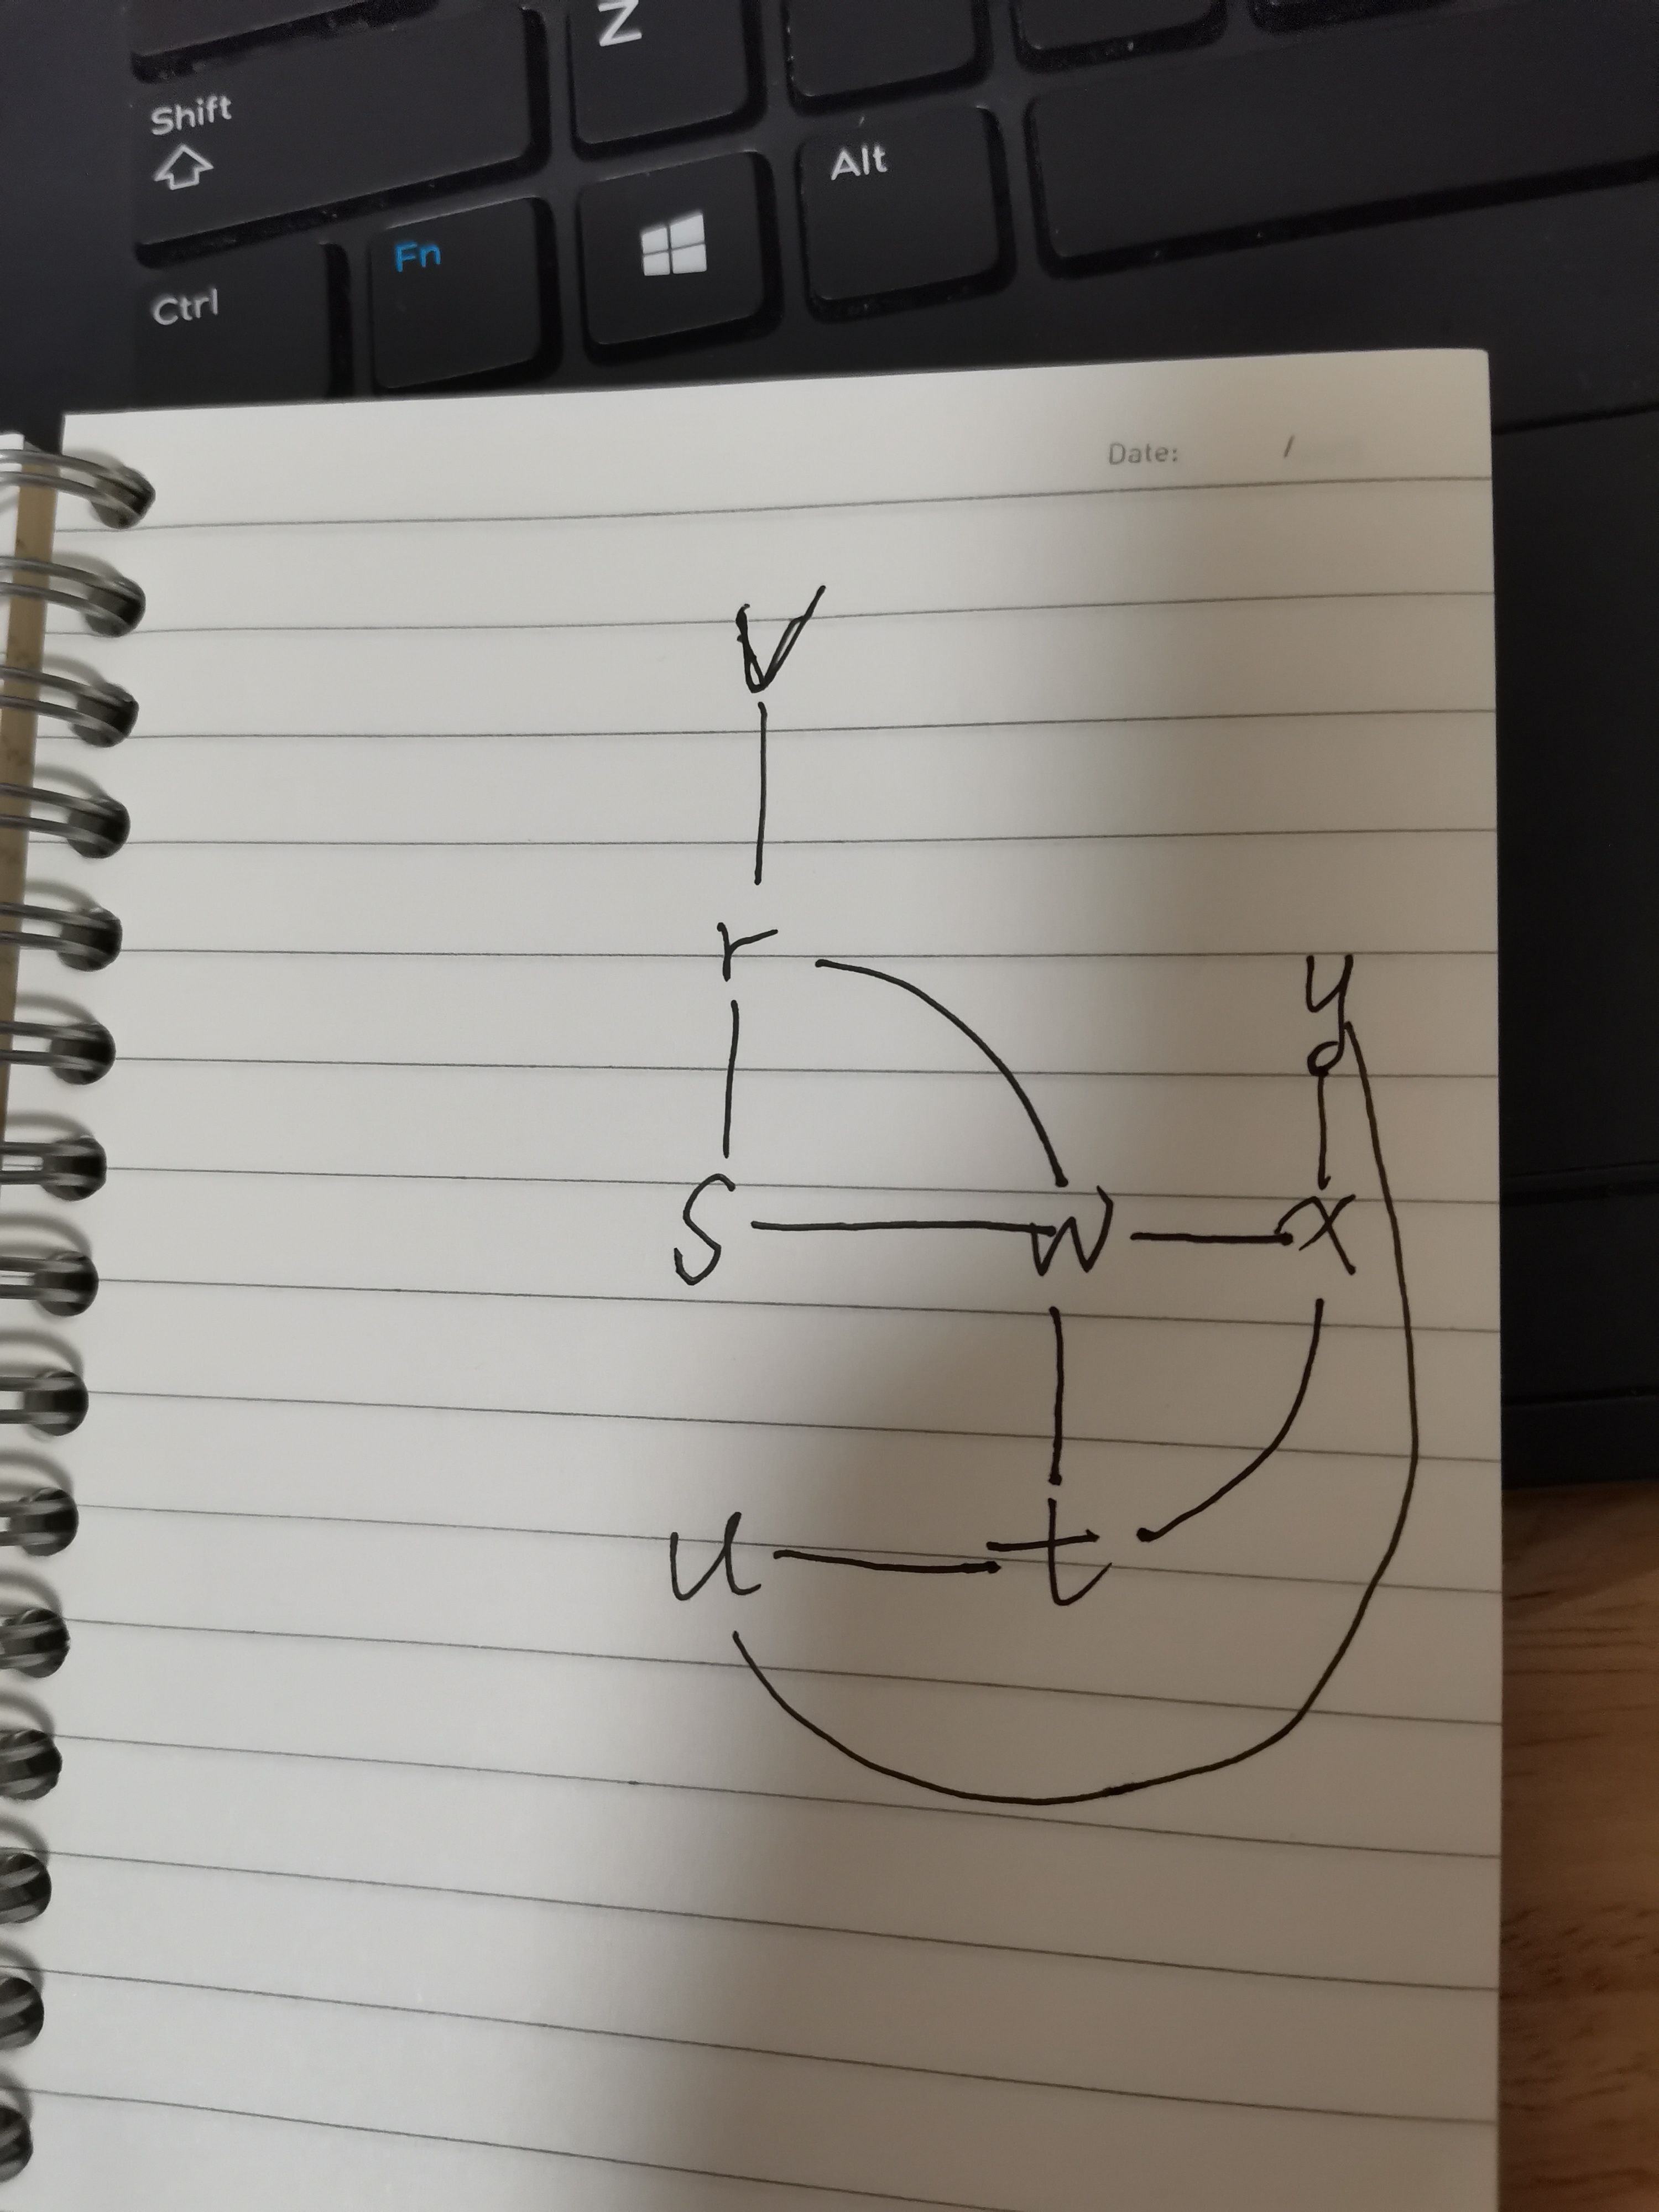 Z
Shift
Alt
Fn
Ctrl
Date: /
V
r
y
S W x
u t